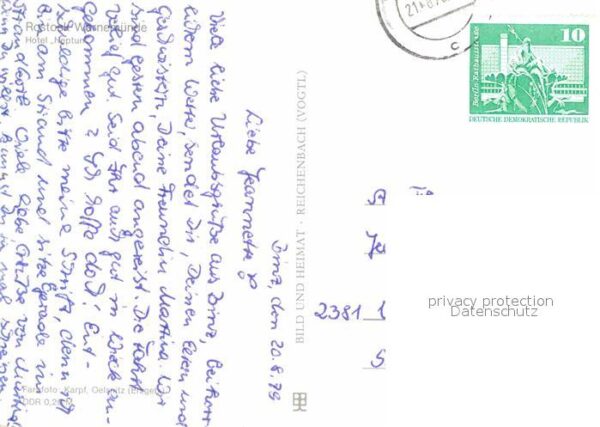 Rostock-Warnemünde
Hotel „Neptun"
Binz, den 20.8.79
Liebe Jeannette!
Viele liebe Urlaubsgrüße aus Binz, bei
Wetter, sendet Dir, Deinen Eltern und
Geschwistern, Deine Freundin Martina. Wir
sind gestern abend angereist. Die Fahrt
verlief gut. Seid Ihr auch gut in
gekommen? Ich hoffe doch! Ent-
schuldige bitte meine Schrift, denn ich
bin am Strand und sitze gerade im
Strandkorb. Viele liebe Grüße von
Farbfoto: Karpf, Oelsnitz (Erzgeb.)
DDR 0,20 M
BILD UND HEIMAT · REICHENBACH (VOGTL)
21.8.
c
Berlin-Rathausstraße
10
DEUTSCHE DEMOKRATISCHE REPUBLIK
2381
privacy protection
Datenschutz